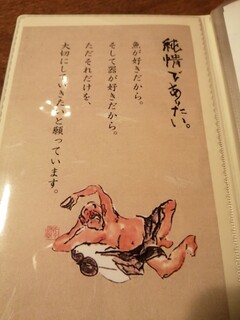 純情でありたい。
魚が好きだから。
そして器が好きだから。
ただそれだけを、
大切にしていきたいと願っています。